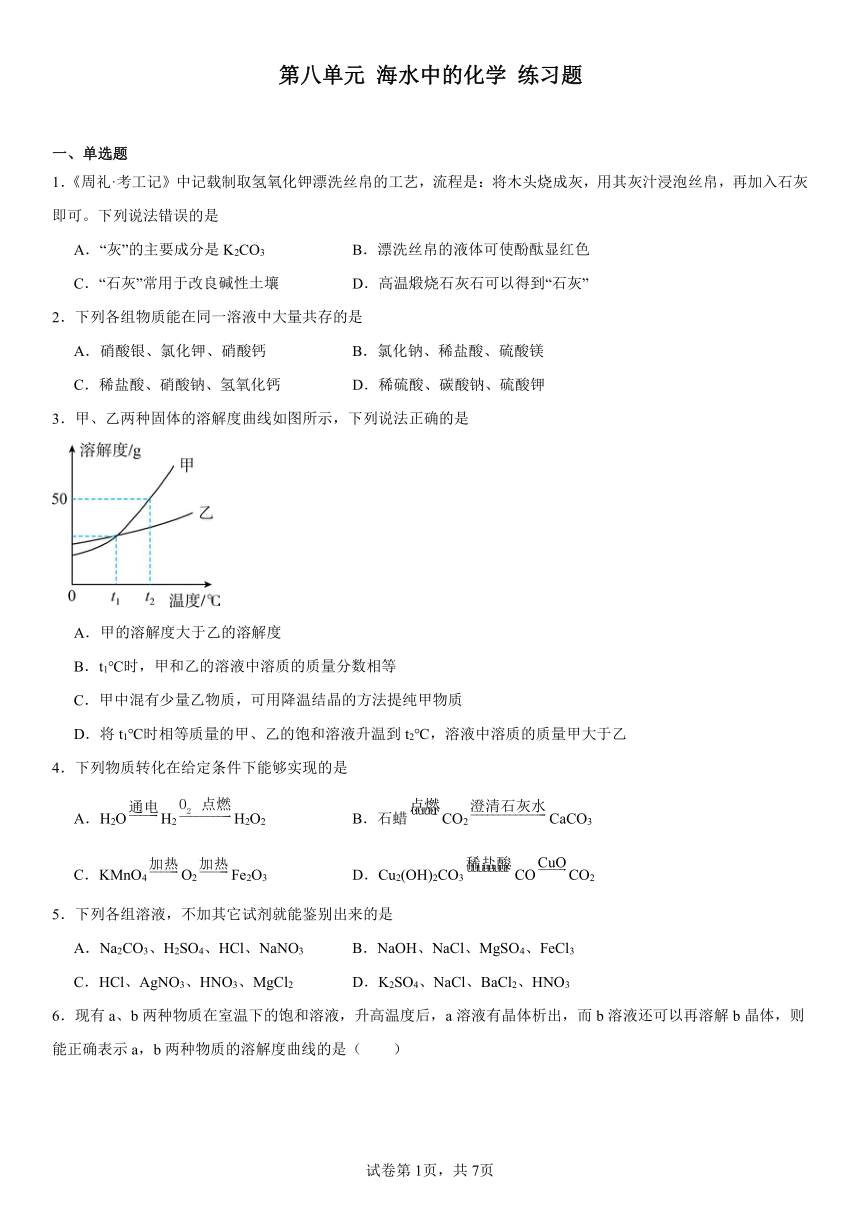 第八单元 海水中的化学 练习题
一、单选题
1.《周礼·考工记》中记载制取氢氧化钾漂洗丝帛的工艺，流程是：将木头烧成灰，用其灰汁浸泡丝帛，再加入石灰
即可。下列说法错误的是
A．“灰”的主要成分是 K₂CO₃ B．漂洗丝帛的液体可使酚酞显红色
C．“石灰”常用于改良碱性土壤 D．高温煅烧石灰石可以得到“石灰”
2．下列各组物质能在同一溶液中大量共存的是
A．硝酸银、氯化钾、硝酸钙 B．氯化钠、稀盐酸、硫酸镁
C．稀盐酸、硝酸钠、氢氧化钙 D．稀硫酸、碳酸钠、硫酸钾
3．甲、乙两种固体的溶解度曲线如图所示，下列说法正确的是
溶解度/g
甲
50
乙
0 t₁ t₂ 温度/℃
A．甲的溶解度大于乙的溶解度
B．t₁℃时，甲和乙的溶液中溶质的质量分数相等
C．甲中混有少量乙物质，可用降温结晶的方法提纯甲物质
D．将 t₁℃时相等质量的甲、乙的饱和溶液升温到 t₂℃，溶液中溶质的质量甲大于乙
4．下列物质转化在给定条件下能够实现的是
A．H₂O 通电→ H₂ O₂ 点燃→ H₂O₂ B．石蜡 点燃→ CO₂ 澄清石灰水→ CaCO₃
C．KMnO₄ 加热→ O₂ 加热→ Fe₂O₃ D．Cu₂(OH)₂CO₃ 稀盐酸→ CO CuO→ CO₂
5．下列各组溶液，不加其它试剂就能鉴别出来的是
A．Na₂CO₃、H₂SO₄、HCl、NaNO₃ B．NaOH、NaCl、MgSO₄、FeCl₃
C．HCl、AgNO₃、HNO₃、MgCl₂ D．K₂SO₄、NaCl、BaCl₂、HNO₃
6．现有 a、b 两种物质在室温下的饱和溶液，升高温度后，a 溶液有晶体析出，而 b 溶液还可以再溶解 b 晶体，则
能正确表示 a，b 两种物质的溶解度曲线的是（　　）
试卷第 1页，共 7页